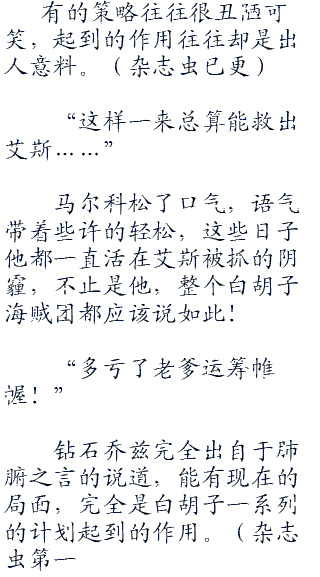 有的策略往往很丑陋可
笑，起到的作用往往却是出
人意料。（杂志虫已更）
“这样一来总算能救出
艾斯……”
马尔科松了口气，语气
带着些许的轻松，这些日子
他都一直活在艾斯被抓的阴
霾，不止是他，整个白胡子
海贼团都应该说如此！
“多亏了老爹运筹帷
幄！”
钻石乔兹完全出自于肺
腑之言的说道，能有现在的
局面，完全是白胡子一系列
的计划起到的作用。（杂志
虫第一